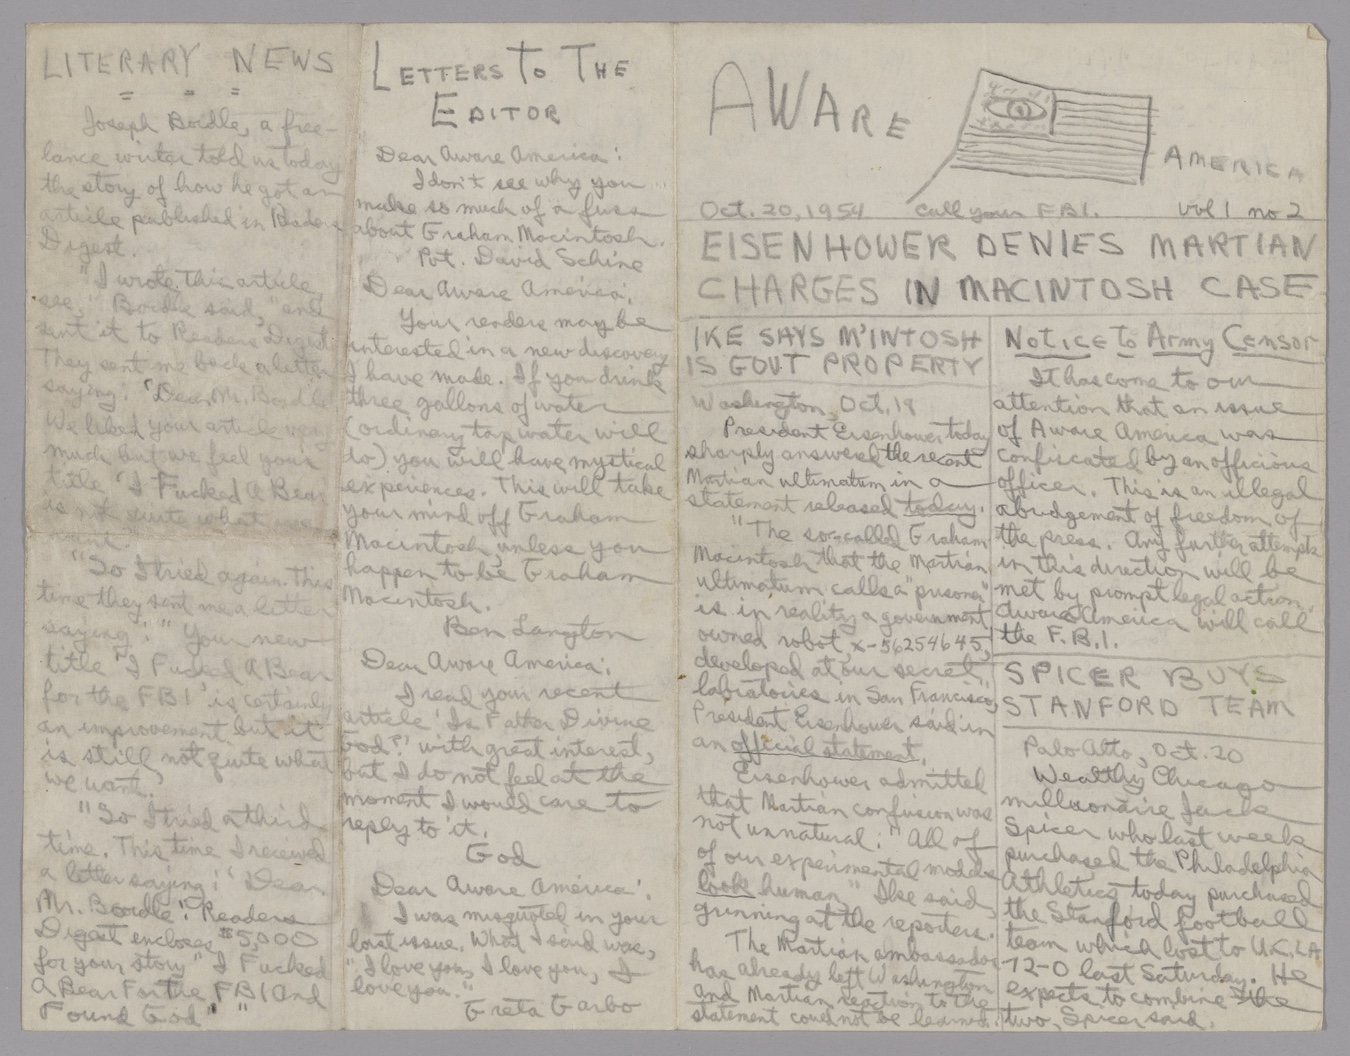 LITERARY NEWS
Joseph Boidle, a free-
lance writer told us today
the story of how he got an
article published in Readers
Digest.
"I wrote this article,
see," Boidle said, "and
sent it to Readers Digest.
They sent me back a letter
saying: 'Dear Mr. Boidle
We liked your article very
much but we feel your
title 'I Fucked A Bear
is not quite what we
want.'
"So I tried again. This
time they sent me a letter
saying: "Your new
title "I Fucked A Bear
for the FBI' is certainly
an improvement but it
is still not quite what
we want.'
"So I tried a third
time. This time I received
a letter saying: 'Dear
Mr. Boidle: Readers
Digest encloses $5,000
for your story "I Fucked
A Bear For the FBI And
Found God" "
LETTERS TO THE
EDITOR
Dear Aware America:
I don't see why you
make so much of a fuss
about Graham Macintosh.
Pvt. David Schine
Dear Aware America,
Your readers may be
interested in a new discovery
I have made. If you drink
three gallons of water
(ordinary tap water will
do) you will have mystical
experiences. This will take
your mind off Graham
Macintosh unless you
happen to be Graham
Macintosh.
Ben Langton
Dear Aware America:
I read your recent
article 'Is Father Divine
God?' with great interest,
but I do not feel at the
moment I would care to
reply to it.
God
Dear Aware America:
I was misquoted in your
last issue. What I said was,
"I love you, I love you, I
love you."
Greta Garbo
AWARE
AMERICA
Oct. 20, 1954 Call your FBI. vol 1 no 2
EISENHOWER DENIES MARTIAN
CHARGES IN MACINTOSH CASE
IKE SAYS M'INTOSH
IS GOVT PROPERTY
Washington, Oct. 19
President Eisenhower today
sharply answered the recent
Martian ultimatum in a
statement released today.
"The so-called Graham
Macintosh that the Martian
ultimatum calls a "prisoner"
is in reality a government
owned robot, x-56254645,
developed at our secret
labratories in San Francisco,
President Eisenhower said in
an official statement.
Eisenhower admitted
that Martian confusion was
not unnatural: "All of
of our experimental models
look human," Ike said,
grinning at the reporters.
The Martian ambassador
has already left Washington
and Martian reaction to the
statement could not be learned.
Notice To Army Censor
It has come to our
attention that an issue
of Aware America was
confiscated by an officious
officer. This is an illegal
abridgement of freedom of
the press. Any further attempts
in this direction will be
met by prompt legal action.
Aware America will call
the F.B.I.
SPICER BUYS
STANFORD TEAM
Palo Alto, Oct. 20
Wealthy Chicago
millionaire Jack
Spicer who last week
purchased the Philadelphia
Athletics today purchased
the Stanford football
team which lost to UCLA
72-0 last Saturday. He
expects to combine the
two, Spicer said.